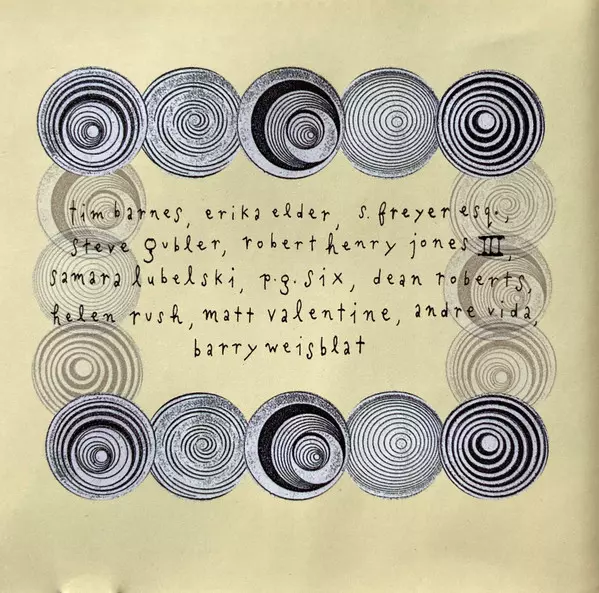 tim barnes, erika elder, s. freyer esq.,
steve gubler, robert henry jones III,
samara lubelski, p.g. six, dean roberts,
helen rush, matt valentine, andre vida,
barry weisblat